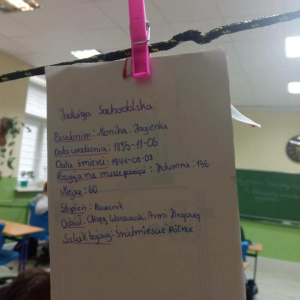 Jadwiga Sochodolska
Pseudonim: Monika, Jagienka
Data urodzenia: 1895-11-06
Data śmierci: 1944-09-03
Pozycja na murze pamięci: Kolumna: 156
Miejsce: 60
Stopień: Kanonier
Oddział: Okręg Warszawski Armii Krajowej
Szlak bojowy: Śródmieście Północ